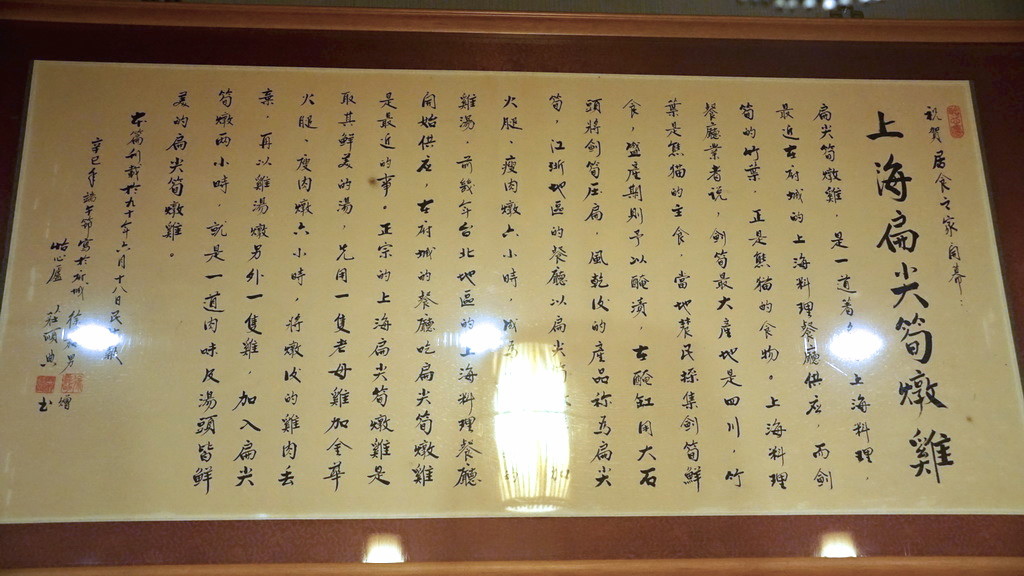 祝賀居食之家開幕：
上海扁尖筍燉雞
扁尖筍燉雞，是一道著 上海料理，
最近古府城的上海料理餐廳供應，而劍
筍的竹葉，正是熊貓的食物。上海料理
餐廳業者說，劍筍最大產地是四川，竹
葉是熊貓的主食，當地農民採集劍筍鮮
食，盛產期則予以醃漬，古醃缸用大石
頭將劍筍壓扁，風乾後的產品稱為扁尖
筍，江浙地區的餐廳以扁尖 加
火腿、瘦肉燉六小時，
雞湯，前幾年台北地區的上海料理餐廳
開始供應，古府城的餐廳吃扁尖筍燉雞
是最近的事。正宗的上海扁尖筍燉雞是
取其鮮美的湯，先用一隻老母雞加金華
火腿、瘦肉燉六小時，將燉後的雞肉丟
棄，再以雞湯燉另外一隻雞，加入扁尖
筍燉兩小時，就是一道肉味及湯頭皆鮮
美的扁尖筍燉雞。
本篇刊載於九十年六月十八日民
辛巳年端午節寫於府城
莊頌典 書